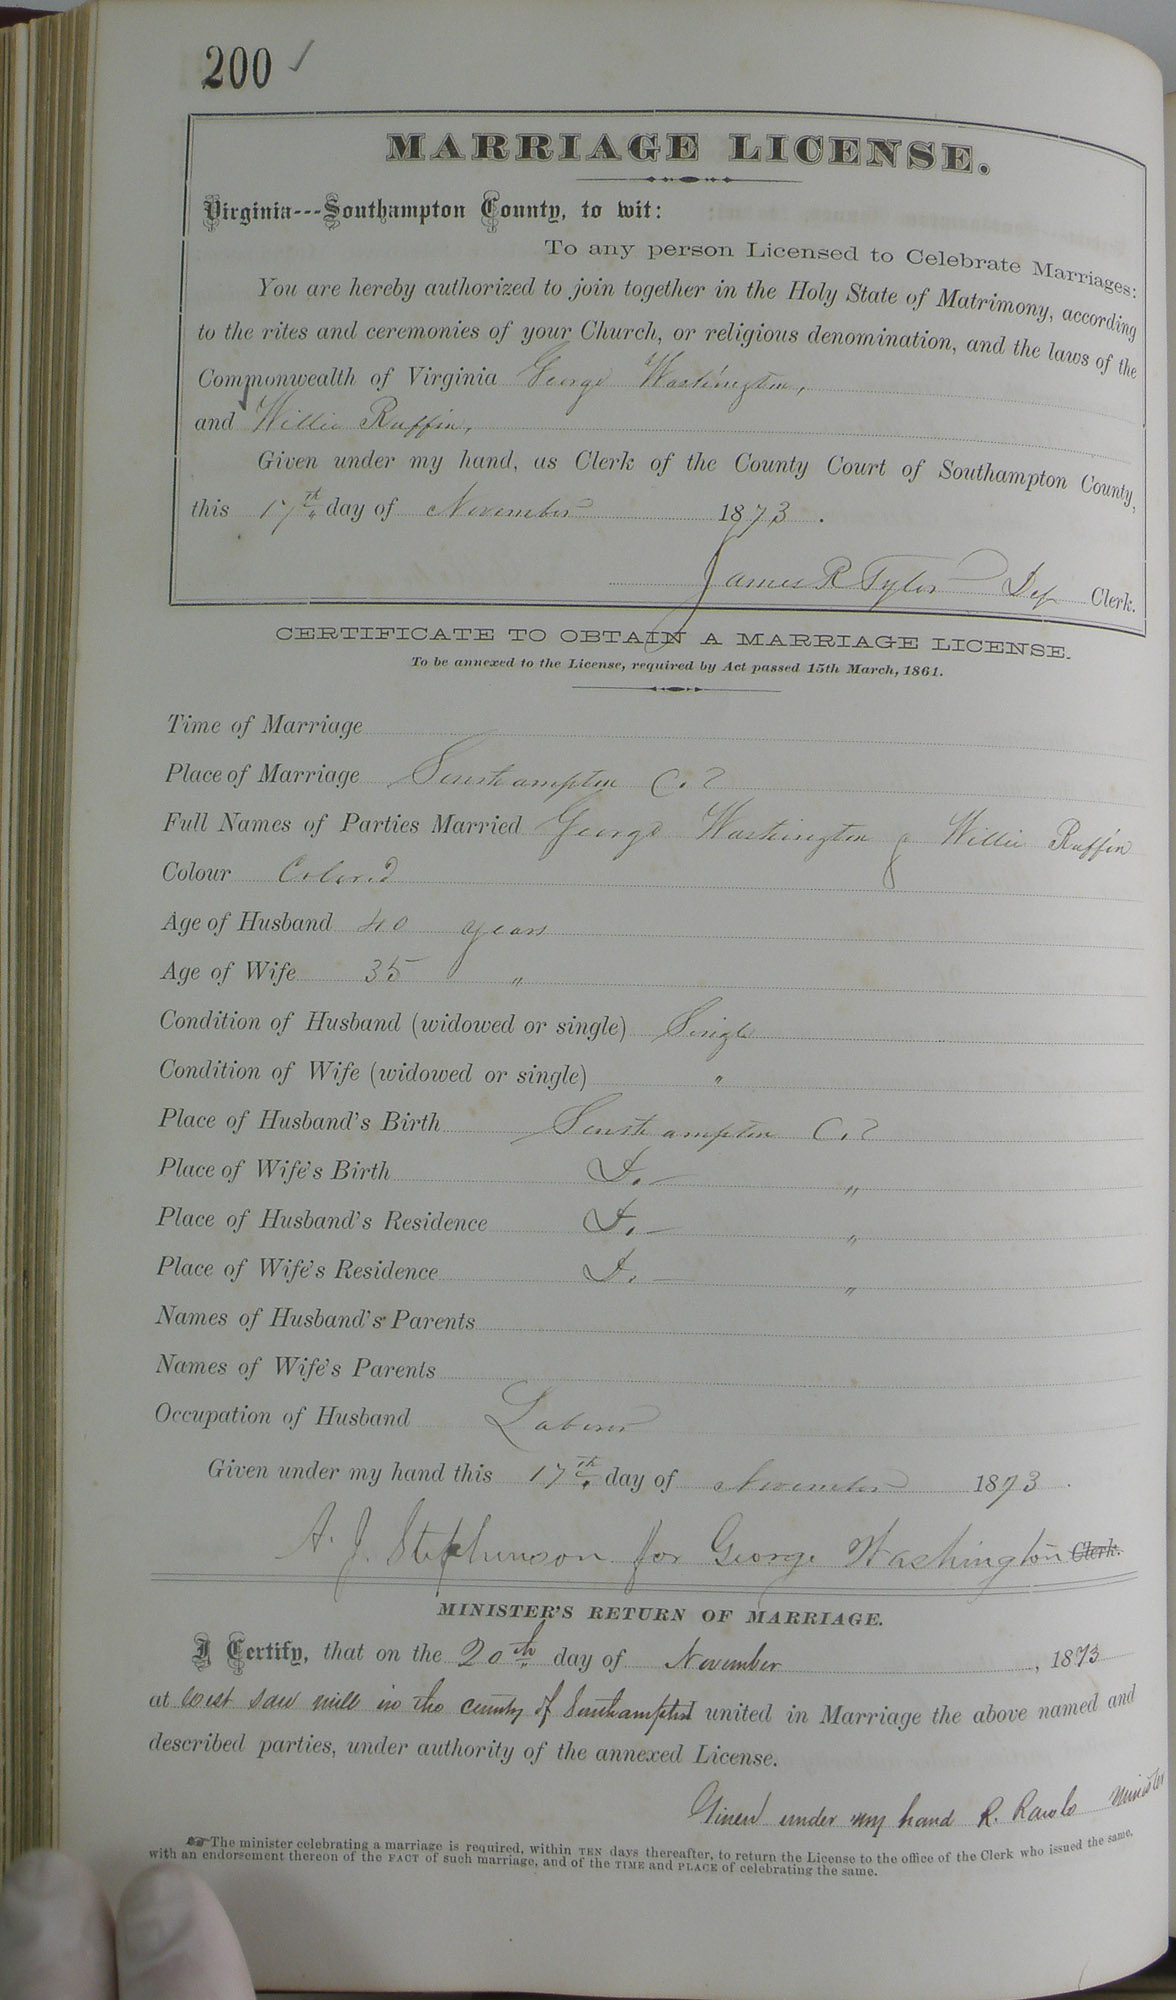 200 ✓
MARRIAGE LICENSE.
Virginia---Southampton County, to wit:
To any person Licensed to Celebrate Marriages:
You are hereby authorized to join together in the Holy State of Matrimony, according
to the rites and ceremonies of your Church, or religious denomination, and the laws of the
Commonwealth of Virginia George Washington,
and Willie Ruffin,
Given under my hand, as Clerk of the County Court of Southampton County,
this 17th day of November 1873.
James R Tyler Dep Clerk.
CERTIFICATE TO OBTAIN A MARRIAGE LICENSE.
To be annexed to the License, required by Act passed 15th March, 1861.
Time of Marriage
Place of Marriage Southampton Co.
Full Names of Parties Married George Washington & Willie Ruffin
Colour Colored
Age of Husband 40 years
Age of Wife 35 "
Condition of Husband (widowed or single) Single
Condition of Wife (widowed or single) "
Place of Husband's Birth Southampton Co.
Place of Wife's Birth Do. "
Place of Husband's Residence Do. "
Place of Wife's Residence Do. "
Names of Husband's Parents
Names of Wife's Parents
Occupation of Husband Laborer
Given under my hand this 17th day of November 1873.
A. J. Stephenson for George Washington Clerk.
MINISTER'S RETURN OF MARRIAGE.
I Certify, that on the 20th day of November, 1873
at west saw mill in the county of Southampton united in Marriage the above named and
described parties, under authority of the annexed License.
Given under my hand R. Rawls Minister
The minister celebrating a marriage is required, within TEN days thereafter, to return the License to the office of the Clerk who issued the same,
with an endorsement thereon of the FACT of such marriage, and of the TIME and PLACE of celebrating the same.